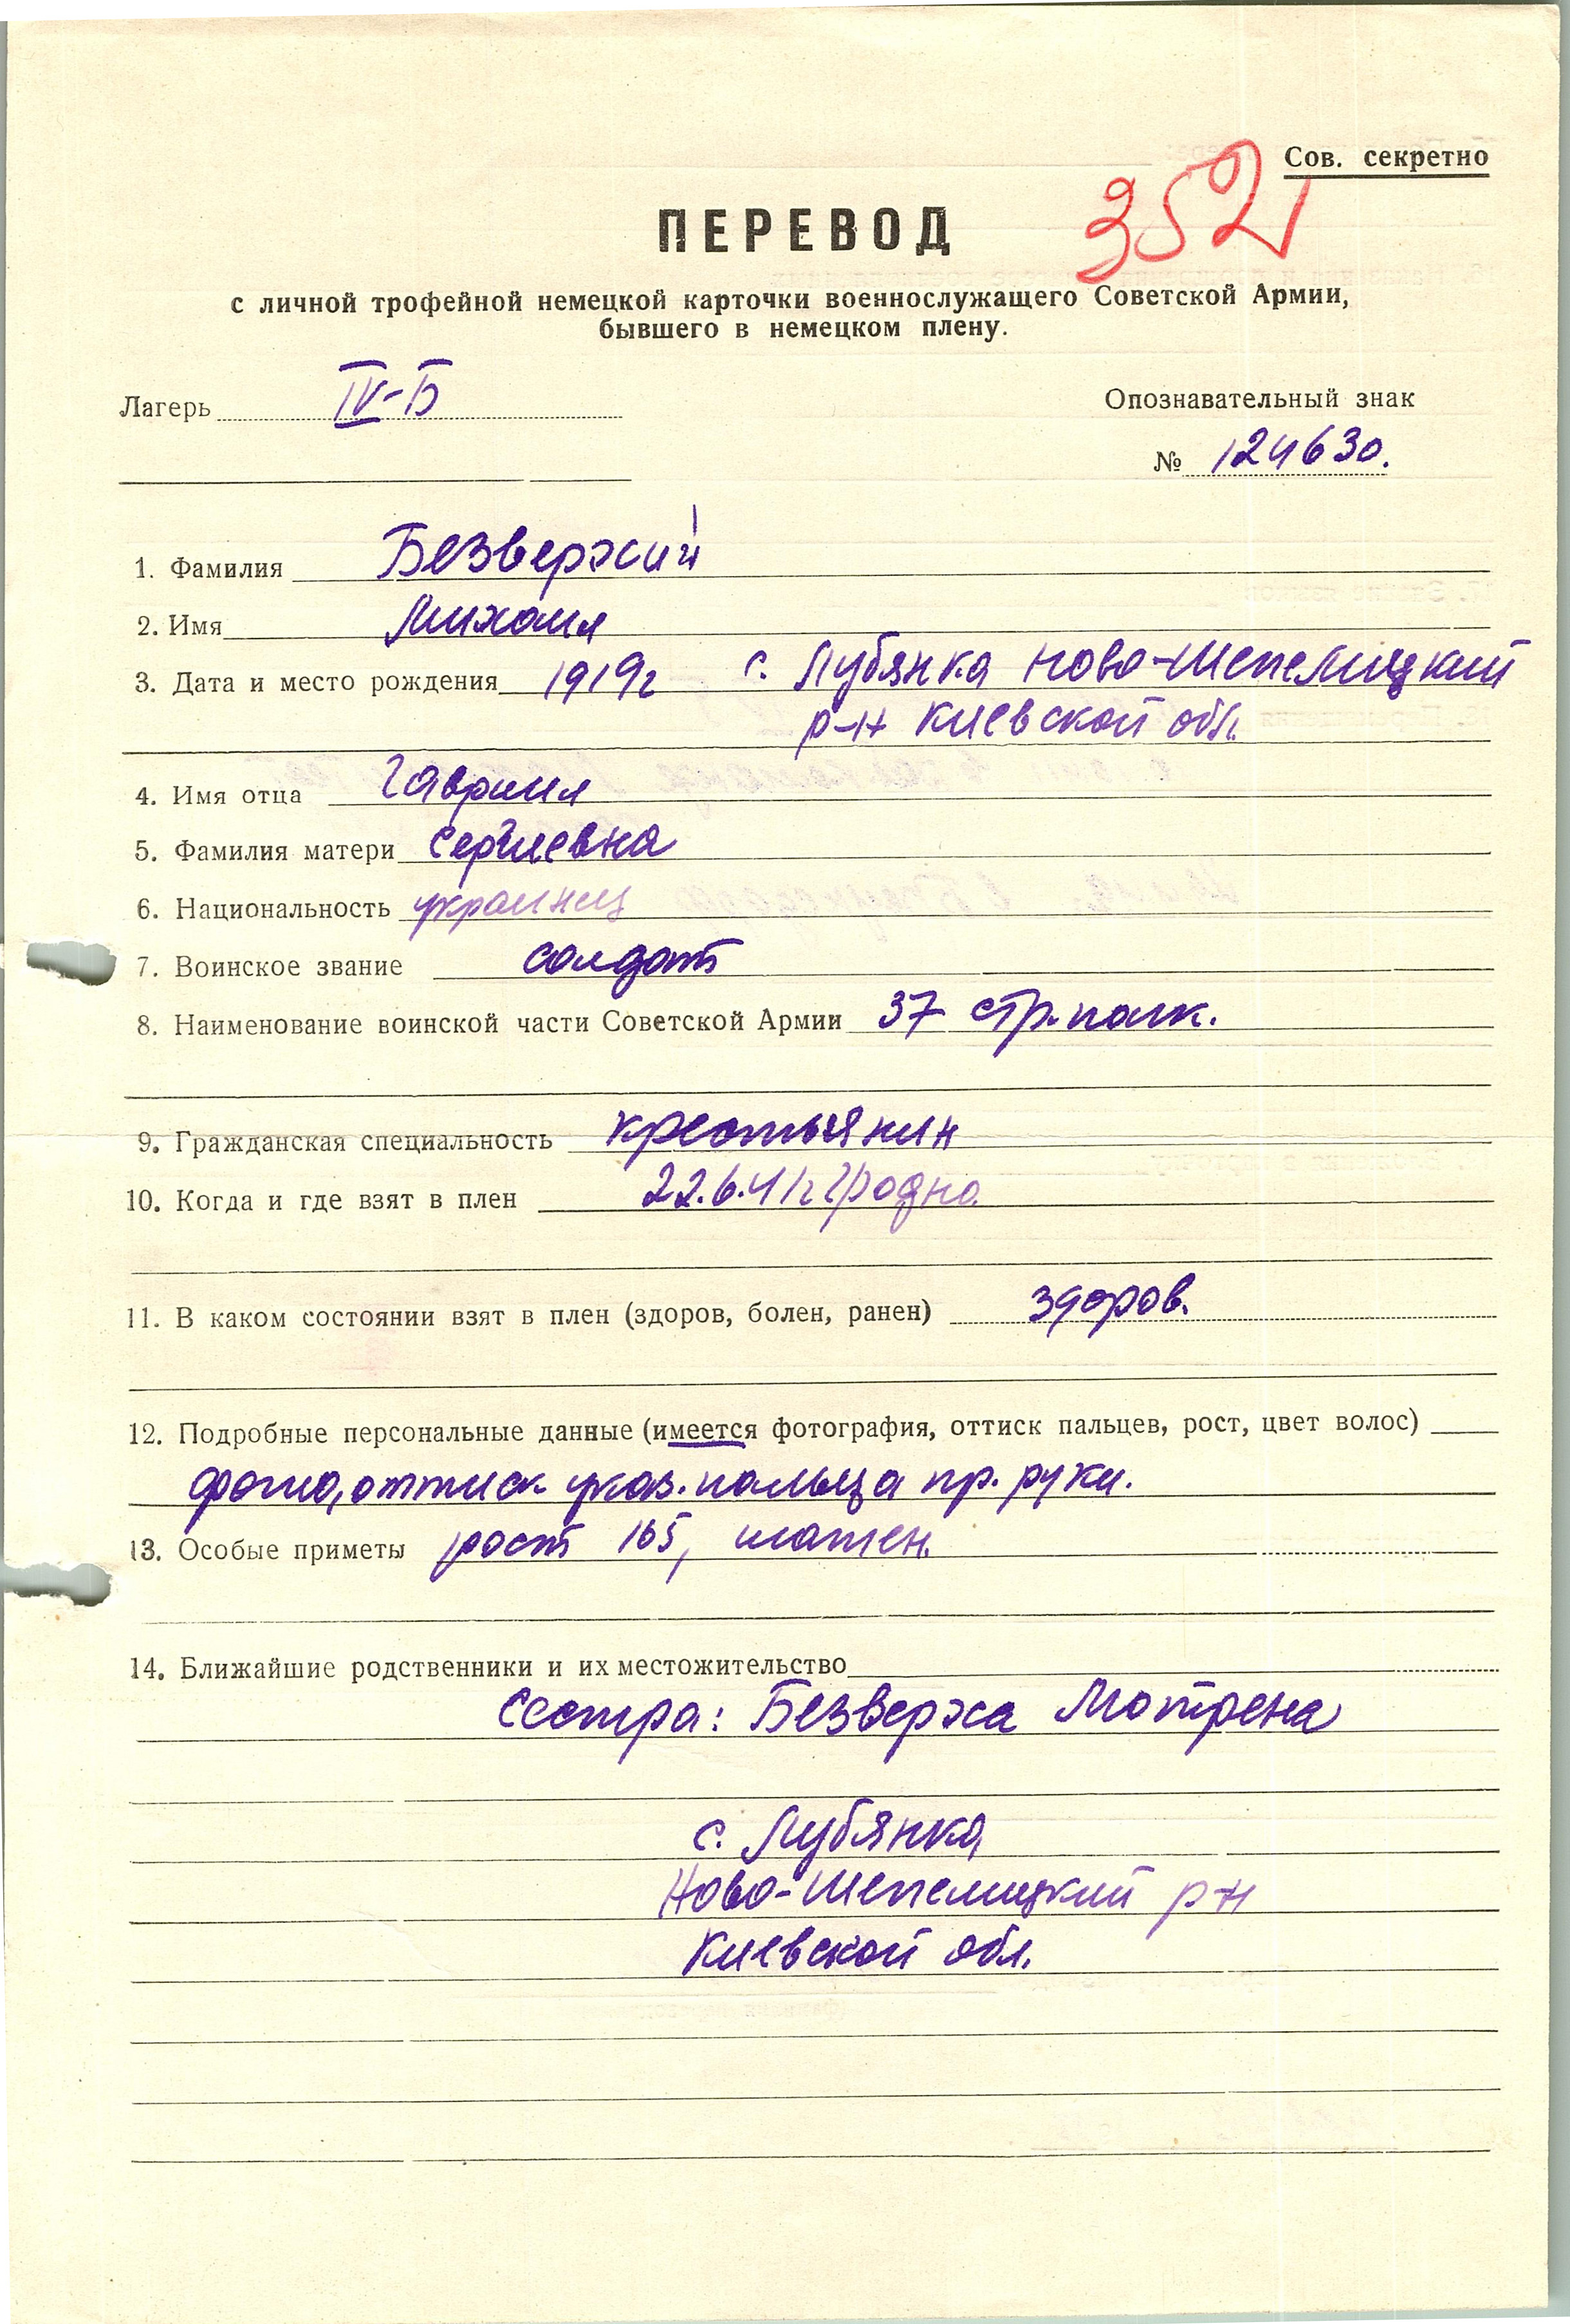 Сов. секретно
352
ПЕРЕВОД
с личной трофейной немецкой карточки военнослужащего Советской Армии,
бывшего в немецком плену.
Лагерь IV-Б
Опознавательный знак
№ 124630.
1. Фамилия Безверхий
2. Имя Михаил
3. Дата и место рождения 1919г с. Лубянка Ново-Шепелицкий
р-н Киевской обл.
4. Имя отца Гавриил
5. Фамилия матери Сергиевна
6. Национальность украинец
7. Воинское звание солдат
8. Наименование воинской части Советской Армии 37 стр. полк.
9. Гражданская специальность крестьянин
10. Когда и где взят в плен 22.6.41г Гродно
11. В каком состоянии взят в плен (здоров, болен, ранен) здоров.
12. Подробные персональные данные (имеется фотография, оттиск пальцев, рост, цвет волос)
фото, оттиск указ. пальца пр. руки.
13. Особые приметы рост 165, шатен.
14. Ближайшие родственники и их местожительство
Сестра: Безверха Мотрена
с. Лубянка
Ново-Шепелицкий р-н
Киевской обл.